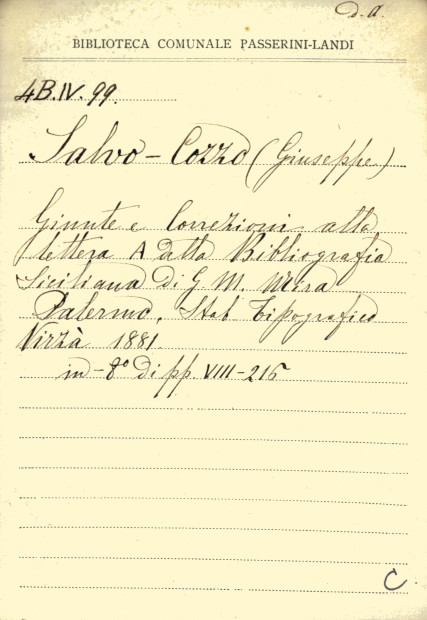 d.a.
BIBLIOTECA COMUNALE PASSERINI-LANDI
4B.IV.99.
Salvo-Cozzo (Giuseppe)
Giunte e Correzioni alla
lettera A della Bibliografia
Siciliana di G. M. Mira
Palermo, Stab Tipografico
Virzà 1881.
in-8° di pp VIII-216
C